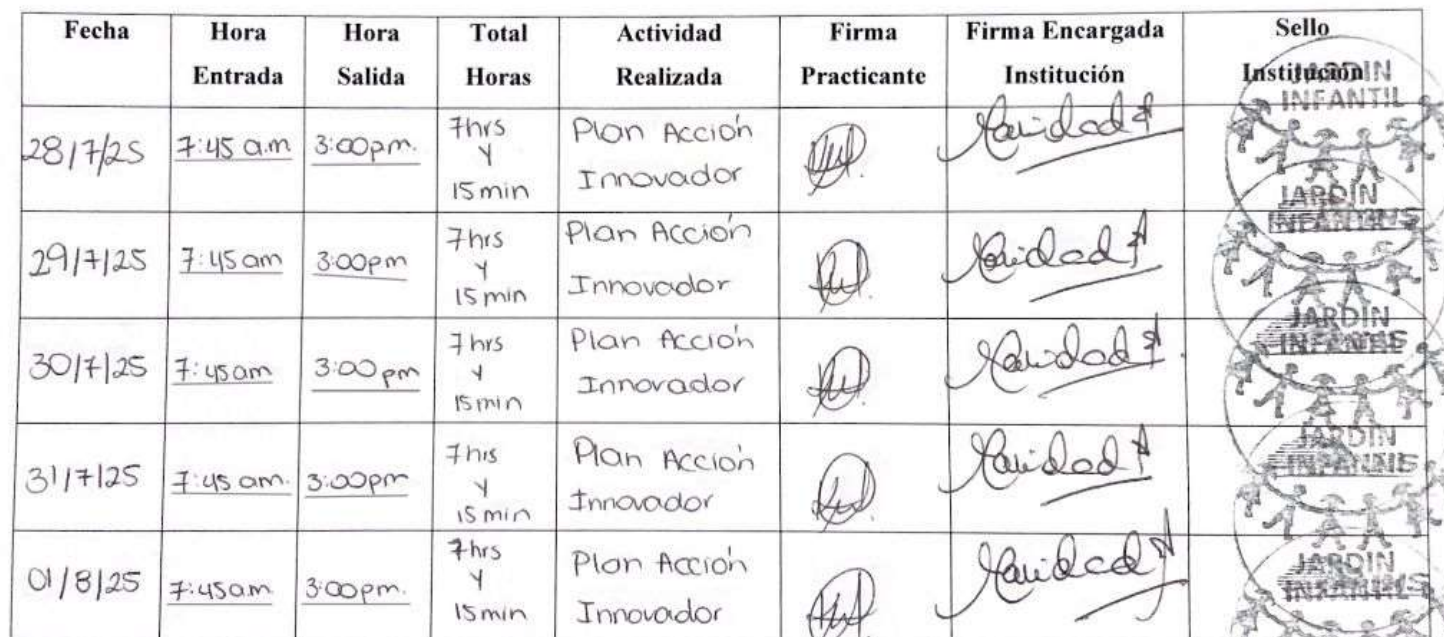 Fecha Hora Entrada Hora Salida Total Horas Actividad Realizada Firma Practicante Firma Encargada Institución Sello Institución
28/7/25 7:45 a.m 3:00pm. 7hrs y 15 min Plan Acción Innovador
JARDIN
INFANTIL
29/7/25 7:45 am 3:00pm 7hrs y 15 min Plan Acción Innovador
JARDIN
30/7/25 7:45am 3:00 pm 7hrs y 15 min Plan Acción Innovador
JARDIN
31/7/25 7:45 am. 3:00pm 7hrs y 15 min Plan Acción Innovador
JARDIN
01/8/25 7:45am. 3:00pm. 7hrs y 15 min Plan Acción Innovador
JARDIN